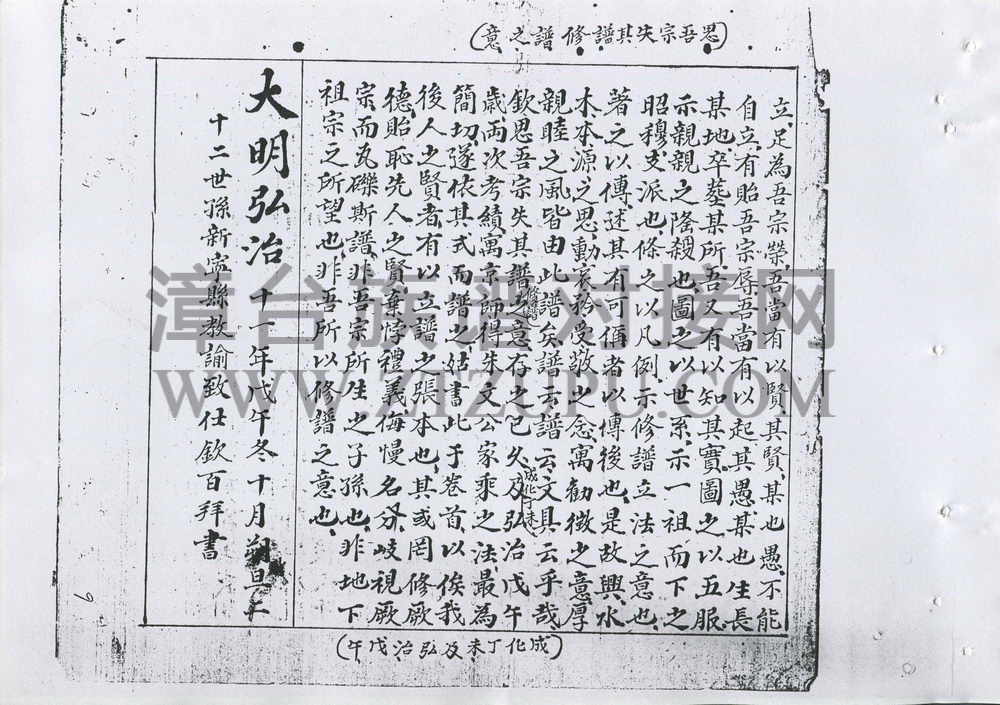 (思吾宗失其譜修譜之意)
立、足為吾宗榮、吾當有以賢其賢、某也愚、不能
自立、有貽吾宗辱、吾當有以起其愚、某也生長
某地、卒塟某所、吾又有以知其實、圖之以五服、
示親親之隆殺也、圖之以世系、示一祖而下之
昭穆支派也、條之以凡例、示修譜立法之意也、
著之以傳述、其有可稱者以傳後也、是故興水
木本源之思、動哀矜受敬之念、寓勸徵之意、厚
親睦之風、皆由此譜矣、譜云譜云、文具云乎哉、
欽思吾宗失其譜之意、存之已久、及弘治戊午
修譜
成化丁未
歲、兩次考績、寓京師、得朱文公家乘之法、最為
簡切、遂依其式而譜之、姑書此于卷首、以俟我
後人之賢者、有以立譜之張本也、其或罔修厥
德、貽恥先人之賢、棄悖禮義、侮慢名分、岐視厥
宗、而瓦礫斯譜、非吾宗所生之子孫也、非地下
祖宗之所望也、非吾所以修譜之意也、
大明弘治十一年戊午冬十月朔旦
十二世孫新寧縣教諭致仕欽百拜書
(成化丁未及弘治戊午)
6
漳台族谱对接网
WWW.ZTZUPU.COM